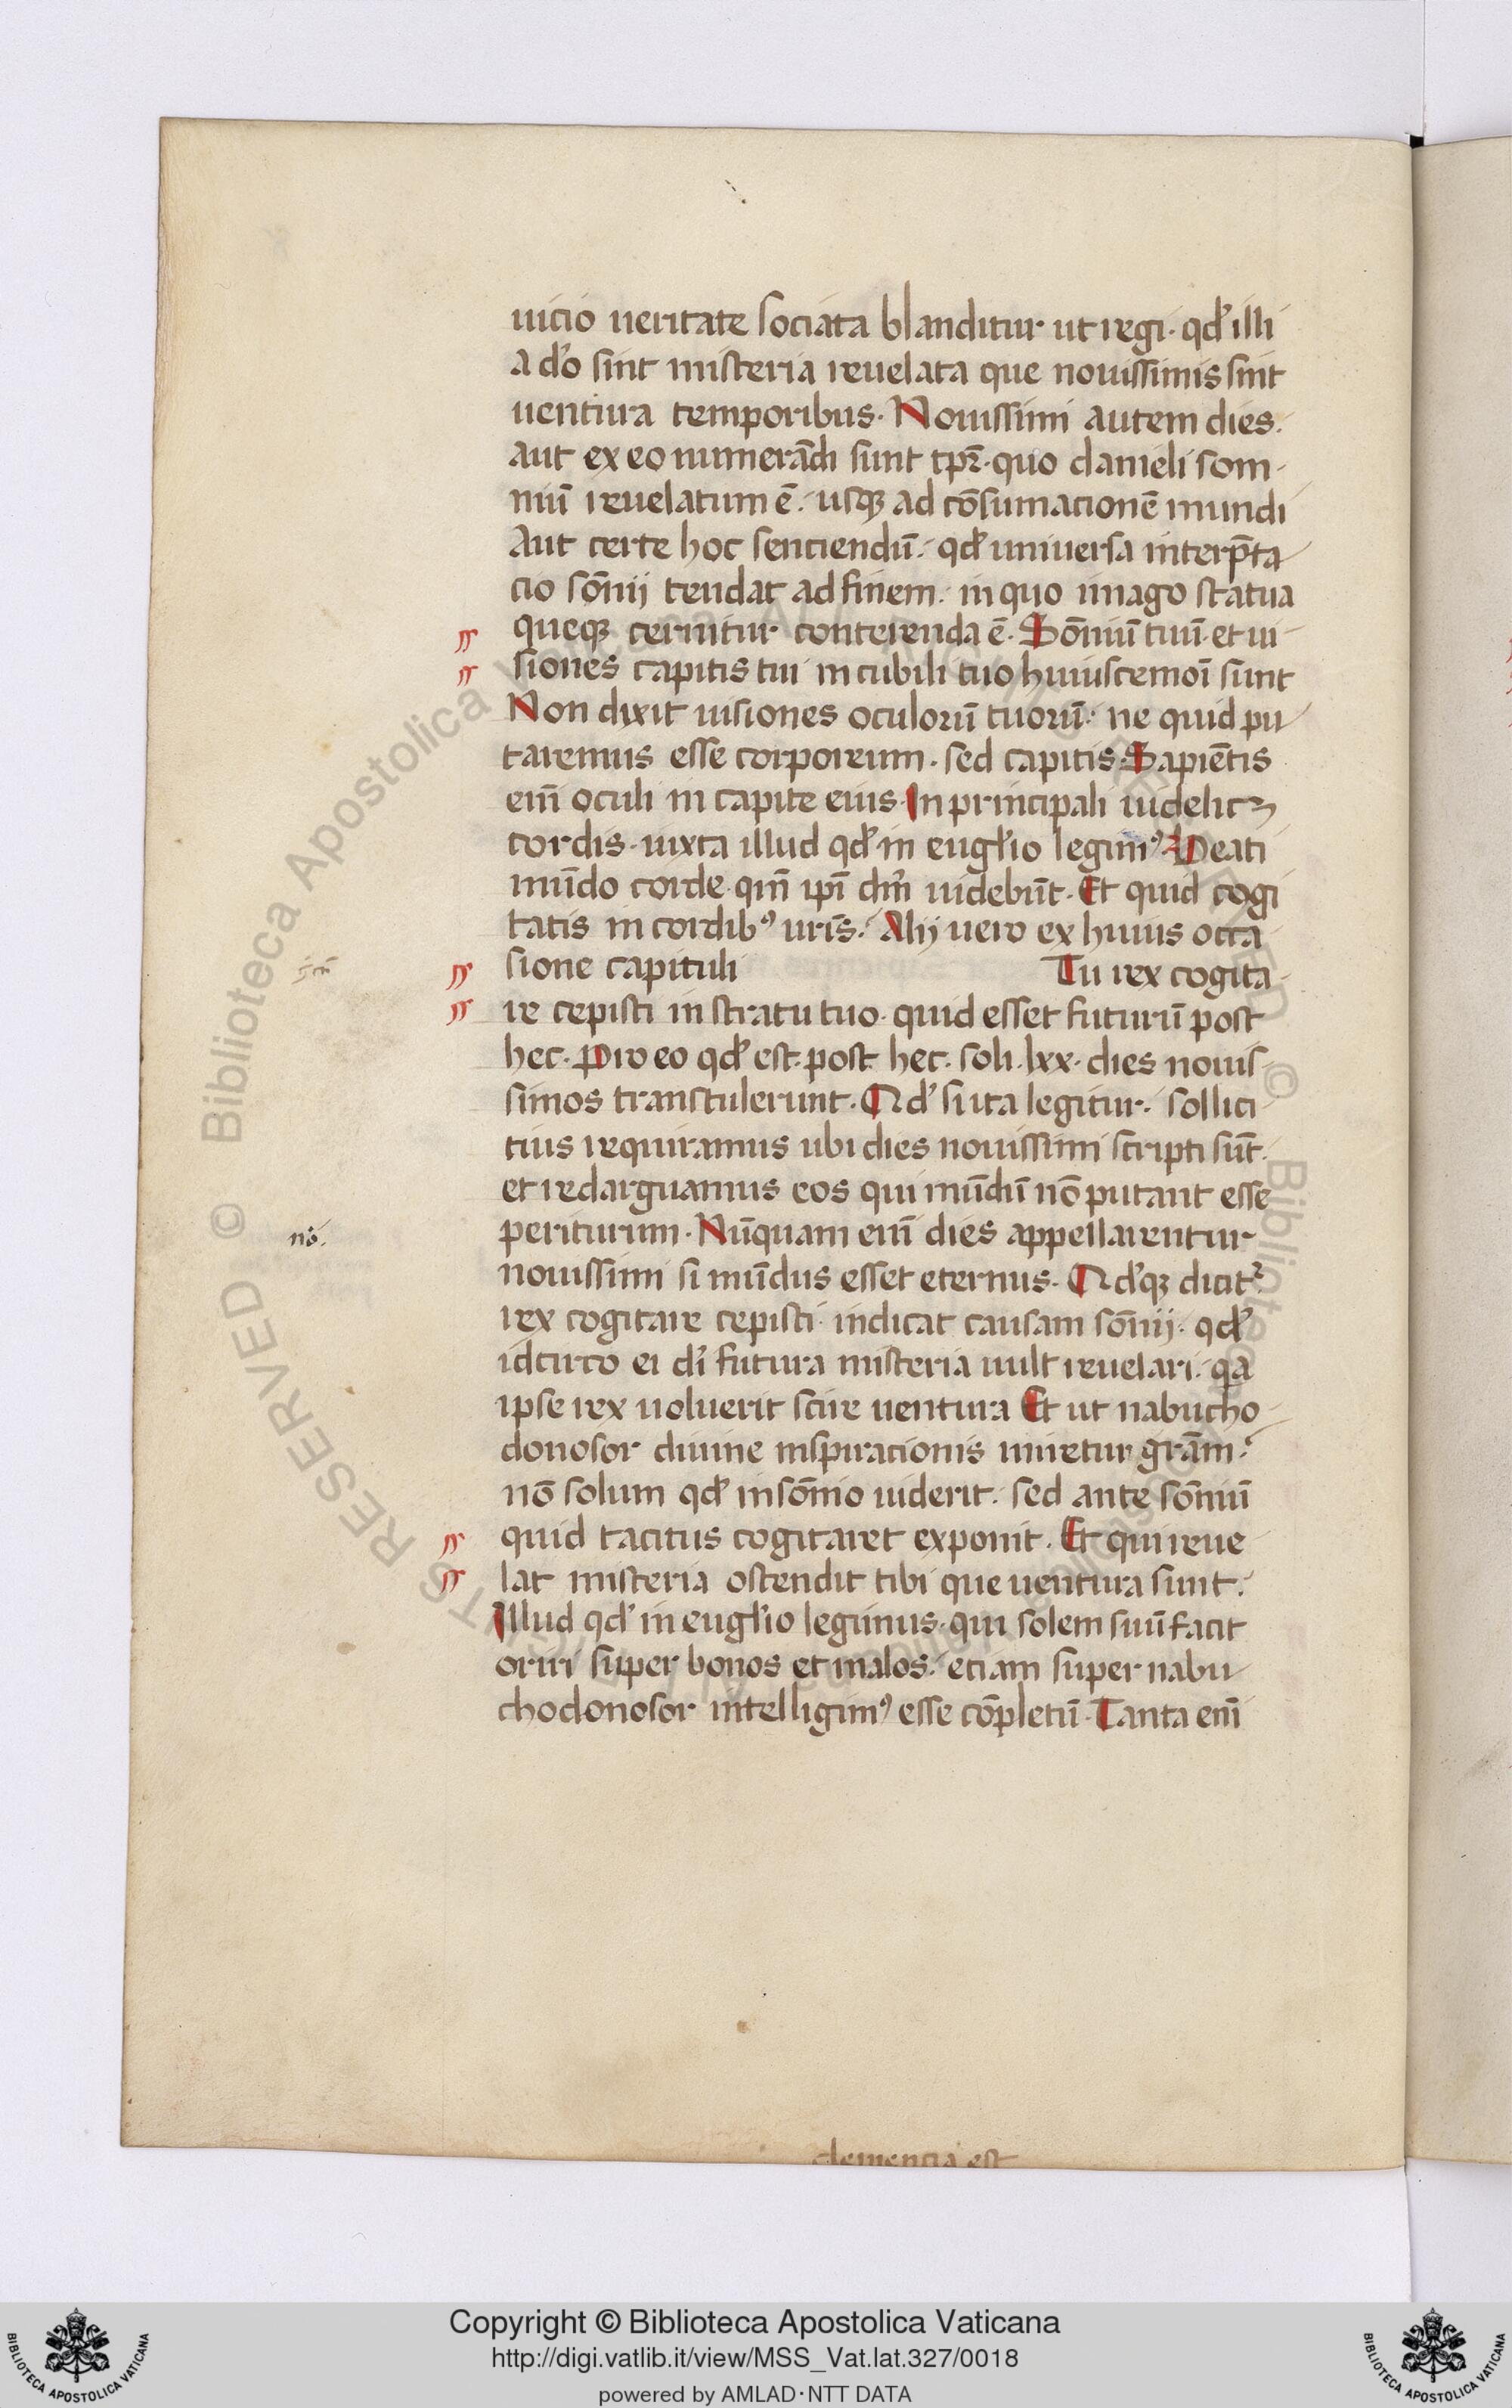 uicio ueritate sociata blanditur ut regi· qd' illi
a d'o sint misteria reuelata que nouissimis sint
uentura temporibus· Nouissimi autem dies·
aut ex eo numerādi sunt tpr̄· quo danieli som-
niū reuelatum ē· usqꝫ ad cōsumacionē mundi
Aut certe hoc senciendū· qd' uniuersa interp̄ta
cio sōnij tendat ad finem· in quo imago statua
queqꝫ cernitur conterenda ē· Sōniū tuū· et ui-
siones capitis tui in cubili tuo huiuscemoī sunt
Non dixit uisiones oculorū tuorū· ne quid pu
taremus esse corporeum· sed capitis· Sapiētis
enī oculi in capite eius· In principali uidelicꝫ
cordis· iuxta illud qd' in eugl'io legimꝰ· Beati
mūdo corde· qm̄ ipī dm̄ uidebūt· Et quid cogi
tatis in cordibꝰ uris̄· Alij uero ex huius occa
sione capituli Tu rex cogita-
re cepisti in stratu tuo· quid esset futurū post
hec· Pro eo qd' est· post hec· soli· lxx· dies nouis-
simos transtulerunt· Qd' si ita legitur· sollici
tius requiramus ubi dies nouissimi scripti sūt·
et redarguamus eos qui mūdū nō putant esse
periturum· Nūquam enī dies appellarentur
nouissimi si mūdus esset eternus· Qd'qꝫ dicit᷑
rex cogitare cepisti· indicat causam sōnij· qd'
idcirco ei dī futura misteria uult reuelari· qa
ipse rex uoluerit scire uentura Et ut nabucho-
donosor diuine inspiracionis miretur grām·
nō solum qd' in sōnio uiderit· sed ante sōniū
quid tacitus cogitaret exponit· Et qui reue
lat misteria ostendit tibi que uentura sunt·
Illud qd' in eugl'io legimus· qui solem suū facit
oriri super bonos et malos· etiam super nabu-
chodonosor intelligimꝰ esse cōpletū· Tanta enī
nō.
clemencia est
Copyright © Biblioteca Apostolica Vaticana
http://digi.vatlib.it/view/MSS_Vat.lat.327/0018
powered by AMLAD·NTT DATA